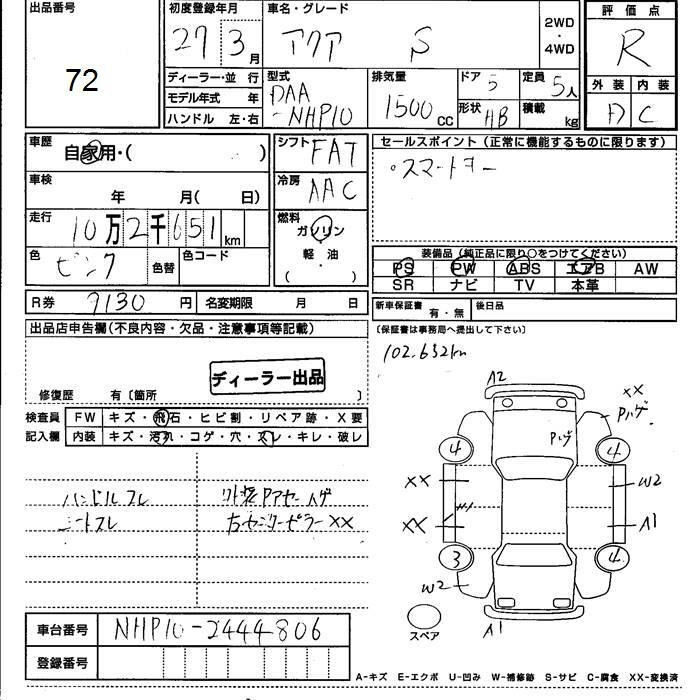 出品番号
72
初度登録年月
27 3月
車名・グレード
アクア S
2WD
・
4WD
評価点
R
ディーラー・並行
モデル年式 年
ハンドル 左・右
型式
DAA
-NHP10
排気量
1500cc
ドア 5
形状 HB
定員 5人
積載 kg
外装 内装
D C
車歴
自家用・( )
車検
年 月( 日)
走行
10万2千651km
色
ピンク
色替
色コード
シフト
FAT
冷房
AAC
燃料
ガソリン
軽・油
( )
セールスポイント(正常に機能するものに限ります)
・スマートキー
装備品(純正品に限り○をつけてください)
PS PW ABS エアB AW
SR ナビ TV 本革
R券 9130円 名変期限 月 日
新車保証書
有・無
後日品
出品店申告欄(不良内容・欠品・注意事項等記載)
(保証書は事務局へ提出して下さい)
102.652km
ディーラー出品
修復歴 有〔箇所 〕
検査員
記入欄
FW キズ・飛石・ヒビ割・リペア跡・X要
内装 キズ・汚れ・コゲ・穴・スレ・キレ・破レ
ハンドルスレ
シートスレ
外装Pアセ～ハゲ
右センターピラーXX
A2
XX
Pハゲ
Pハゲ
4 4
XX W2
XX A1
3 4
W2
A1
スペア
車台番号 NHP10-2444806
登録番号
A-キズ E-エクボ U-凹み W-補修跡 S-サビ C-腐食 XX-変換済